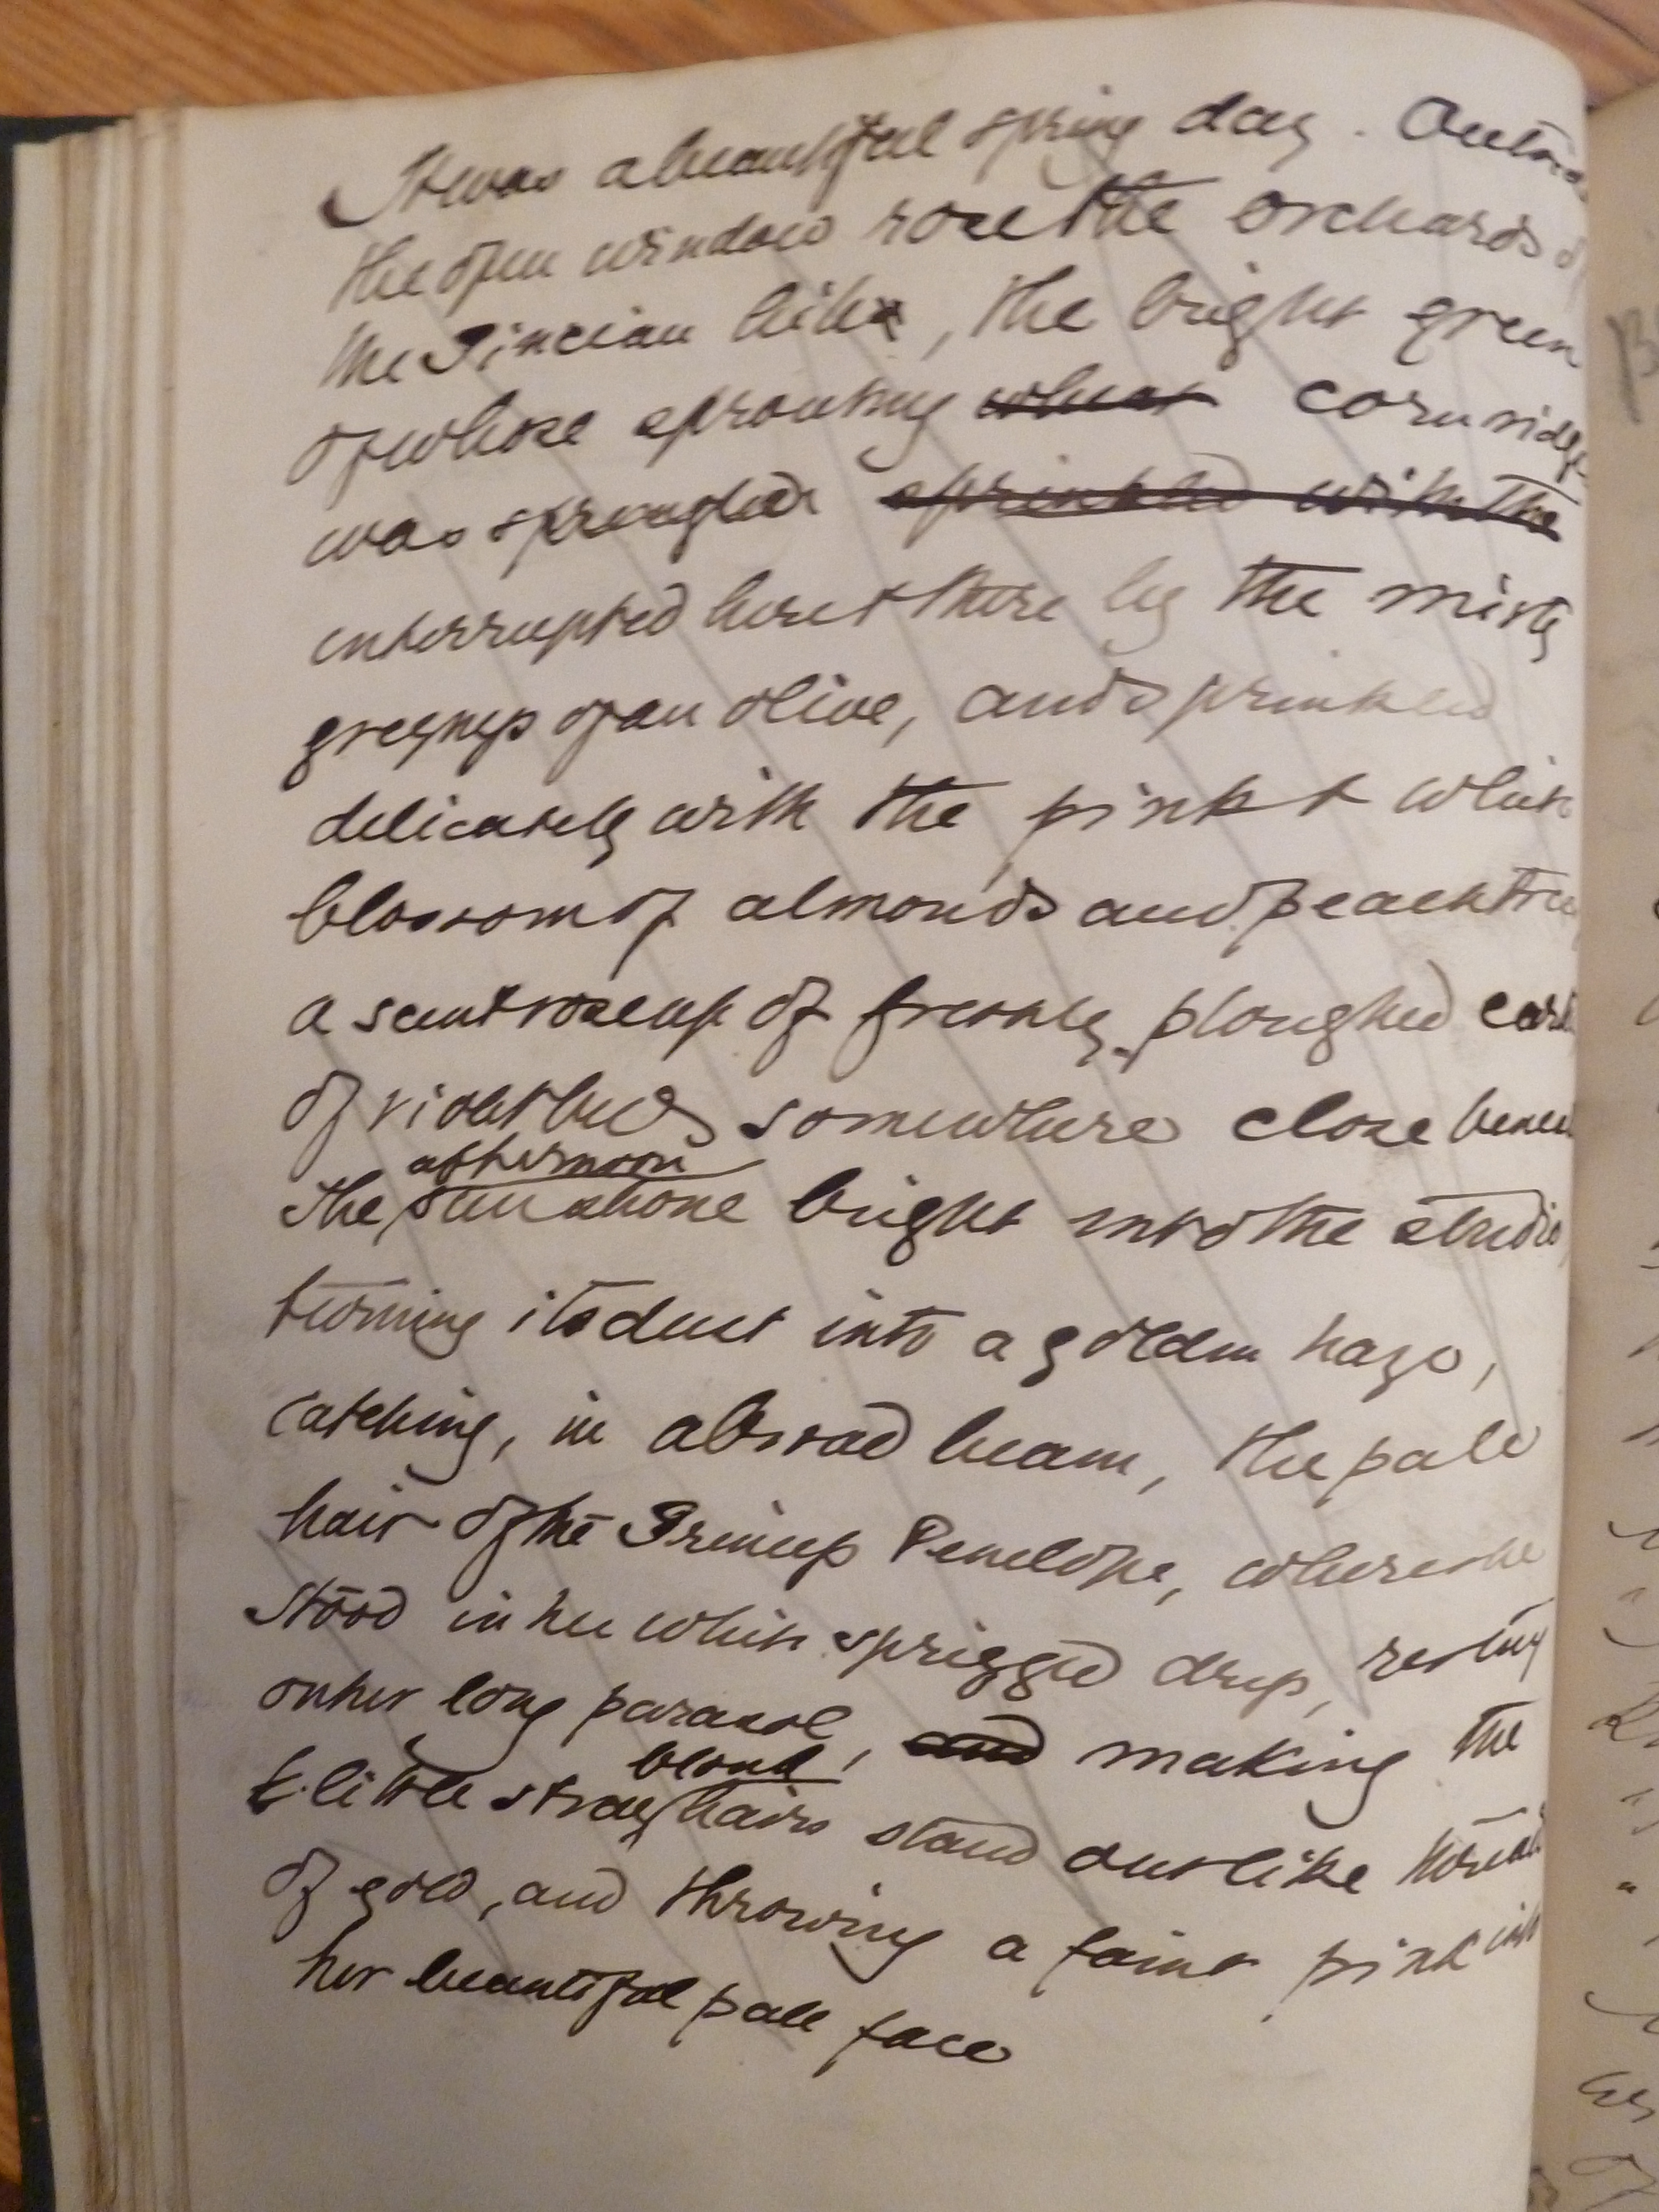 It was a beautiful spring day. Outside
the open window rose the orchards of
the Pincian hill, the bright green
of whose sprouting wheat corn ridges
was spangled sprinkled with the
interrupted here & there by the misty
greyness of an olive, and sprinkled
delicately with the pink & white
blossom of almonds and peachtrees
a scent rose up of freshly ploughed earth
of violet beds somewhere close beneath
afternoon
The sun shone bright into the studio,
turning its dust into a golden haze,
catching, in a broad beam, the pale
hair of the Princess Penelope, where she
stood in her white sprigged dress, resting
on her long parasol, and making the
blond
little stray hairs stand out like threads
of gold, and throwing a faint pink into
her beautiful pale face